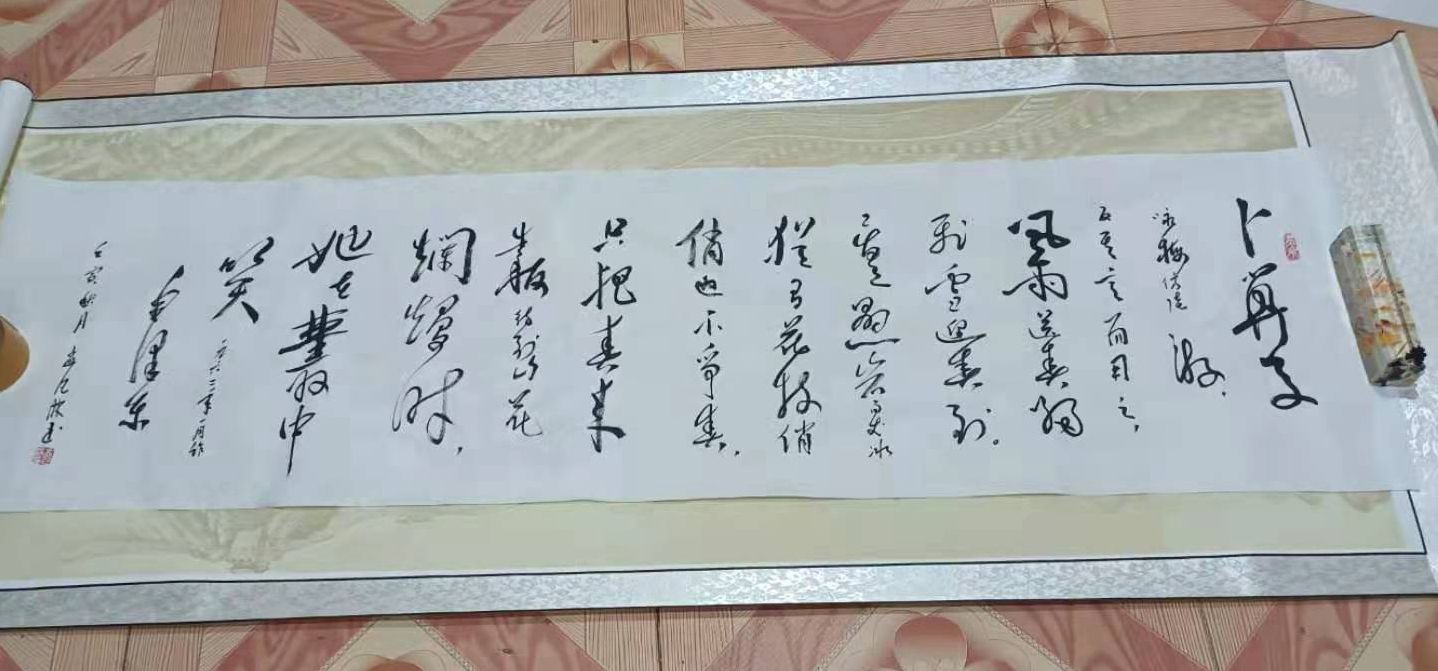 卜算子
咏梅 陆游
反其意而用之，
风雨送春归
飞雪迎春到。
已是悬崖百丈冰
犹有花枝俏
俏也不争春，
只把春来
春报 待到山花
烂熳时，
她在丛中
笑
一九六二年一月作
毛泽东
壬寅秋月
书